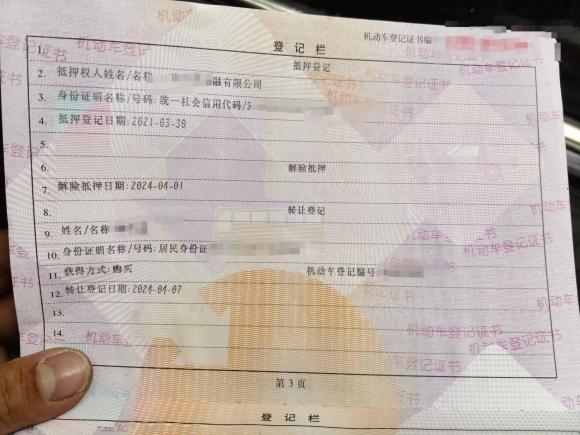 机动车登记证书编
登记栏
1. 抵押登记
2. 抵押权人姓名/名称 融有限公司
3. 身份证明名称/号码:统一社会信用代码/9
4. 抵押登记日期:2021-03-30
5.
6. 解除抵押
7. 解除抵押日期:2024-04-01
8. 转让登记
9. 姓名/名称
10. 身份证明名称/号码:居民身份证
11. 获得方式:购买 机动车登记编号:
12. 转让登记日期:2024-04-07
13.
14.
第3页
登记栏
机动车登记证书